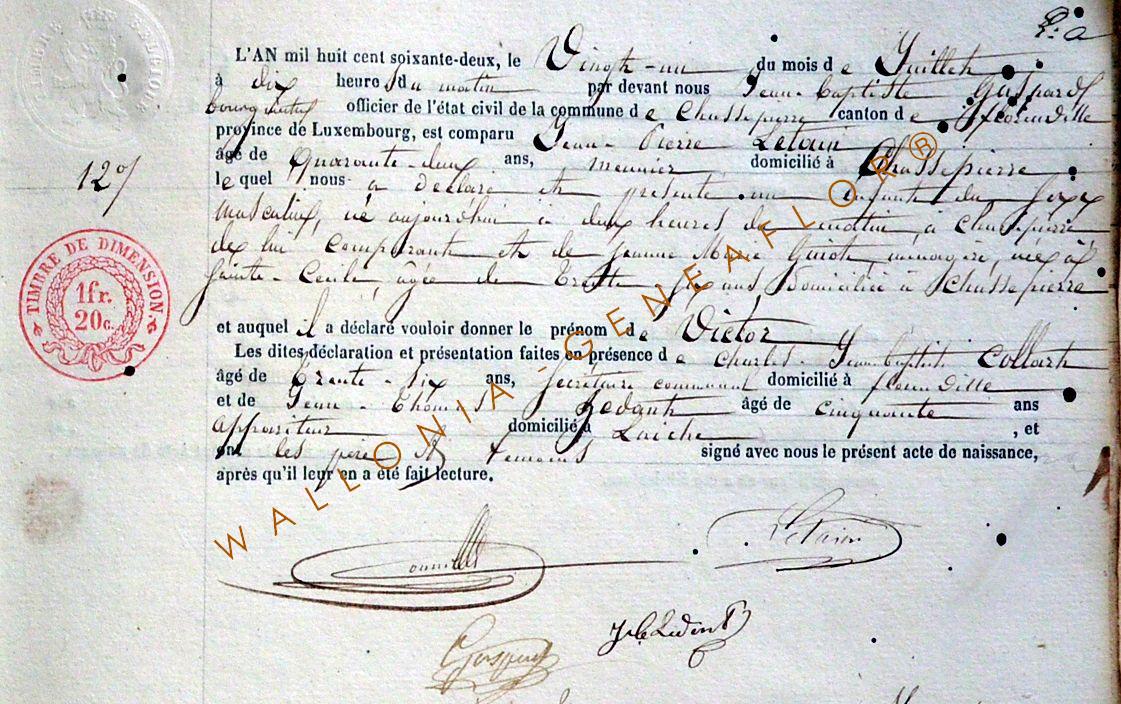 L'AN mil huit cent soixante-deux, le Vingt-un du mois de Juillet
à dix heure du matin par devant nous Jean-Baptiste Gaspard
bourgmestre officier de l'état civil de la commune de Chassepierre canton de Florenville
province de Luxembourg, est comparu Jean-Pierre Letain
âgé de Quarante-deux ans, meunier domicilié à Chassepierre
le quel nous a déclaré et présenté un enfant du sexe
masculin, né aujourd'hui à deux heures du matin, à Chassepierre
de lui comparant et de Jeanne Marie Guiot, ménagère, née à
Sainte-Cecile, agée de Trente-six ans, domiciliée à Chassepierre
et auquel il a déclaré vouloir donner le prénom de Victor
Les dites déclaration et présentation faites en présence de Charles-Jean-Baptiste Collart
âgé de Trente-six ans, Secrétaire communal domicilié à Florenville
et de Jean-Thomas âgé de cinquante ans
appariteur domicilié à Laiche, et
ont les père et temoins signé avec nous le présent acte de naissance,
après qu'il leur en a été fait lecture.
12
TIMBRE DE DIMENSION.
1 fr.
20 c.
WALLONIA-GENEAFLOR®
Letain